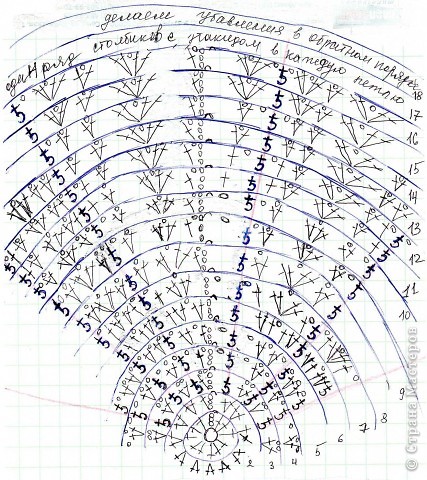 делаем убавления в обратном порядке
один ряд столбиков с накидом в каждую петлю
18
17
16
15
14
13
12
11
10
9
8
7
6
5
4
3
2
© Страна Мастеров